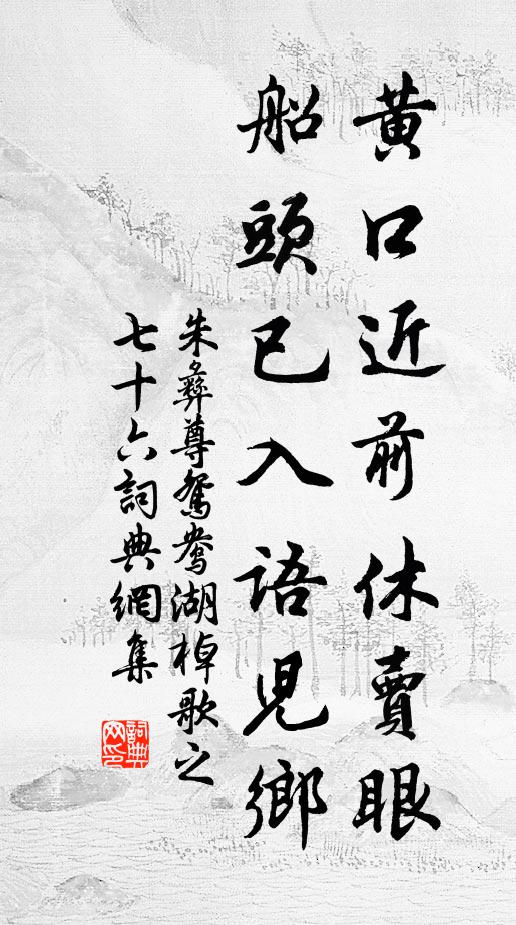 黄口近前休賣眼
船頭已入語兒鄉
朱彝尊鴛鴦湖棹歌之
七十六詞典網集
詞典網印